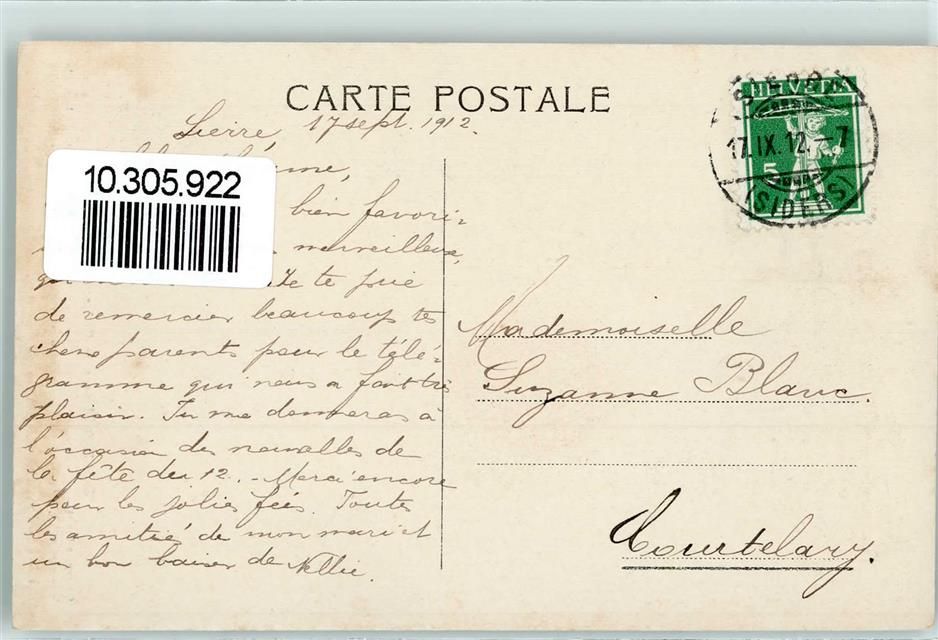 CARTE POSTALE
Sierre, 17 sept. 1912.
10.305.922
bien favori-
merveilleux,
Je te prie
de remercier beaucoup tes
chers parents pour le télé-
gramme qui nous a fait très
plaisir. Tu me donneras à
l'occasion des nouvelles de
la fête du 12. - Merci encore
pour les jolies fées. Toutes
les amitiés de mon mari et
un bon baiser de Nellie.
HELVETIA
5
SIERRE
17.IX.12.-7
(SIDERS)
Mademoiselle
Suzanne Blanc.
Courtelary.